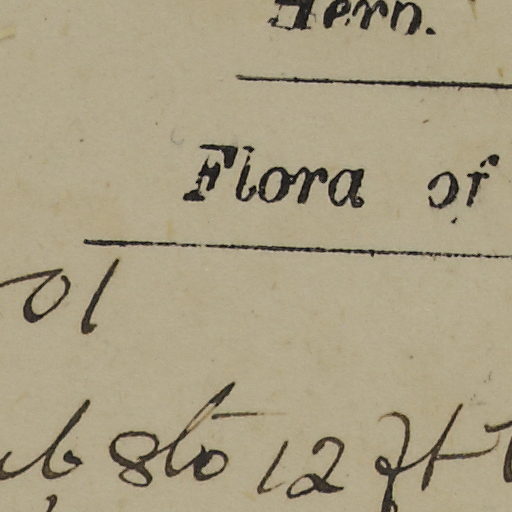 Herb.
Flora of
01
8 to 12 ft